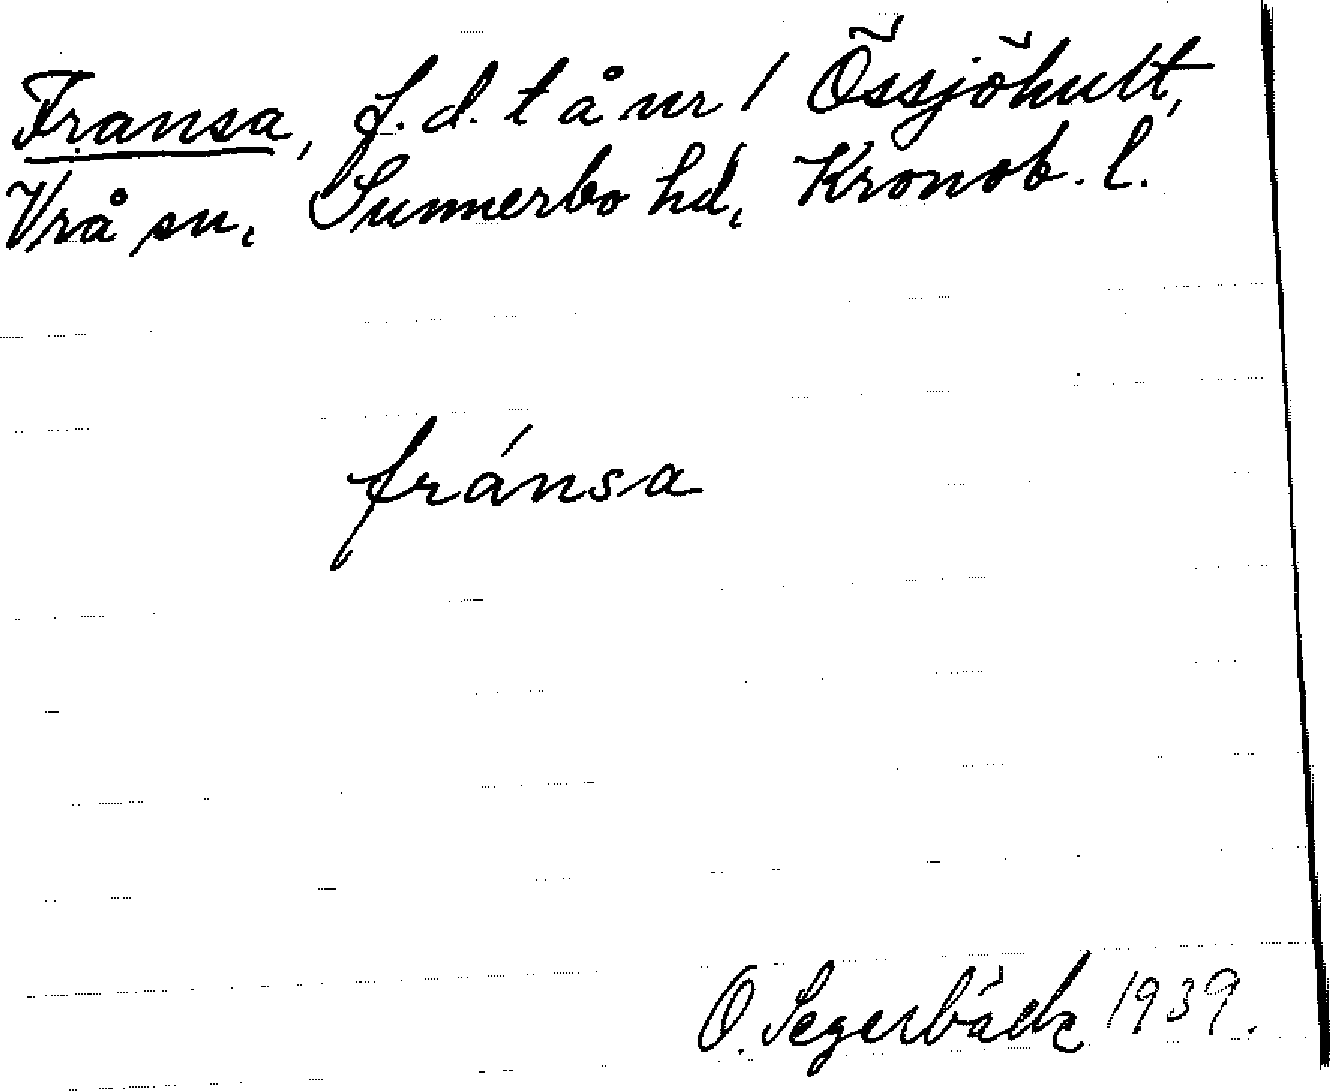 Fransa, f.d. t å nr 1 Össjöhult,
Vrå sn, Sunnerbo hd, Kronob. l.
fránsa
O. Segerbäck 1939.